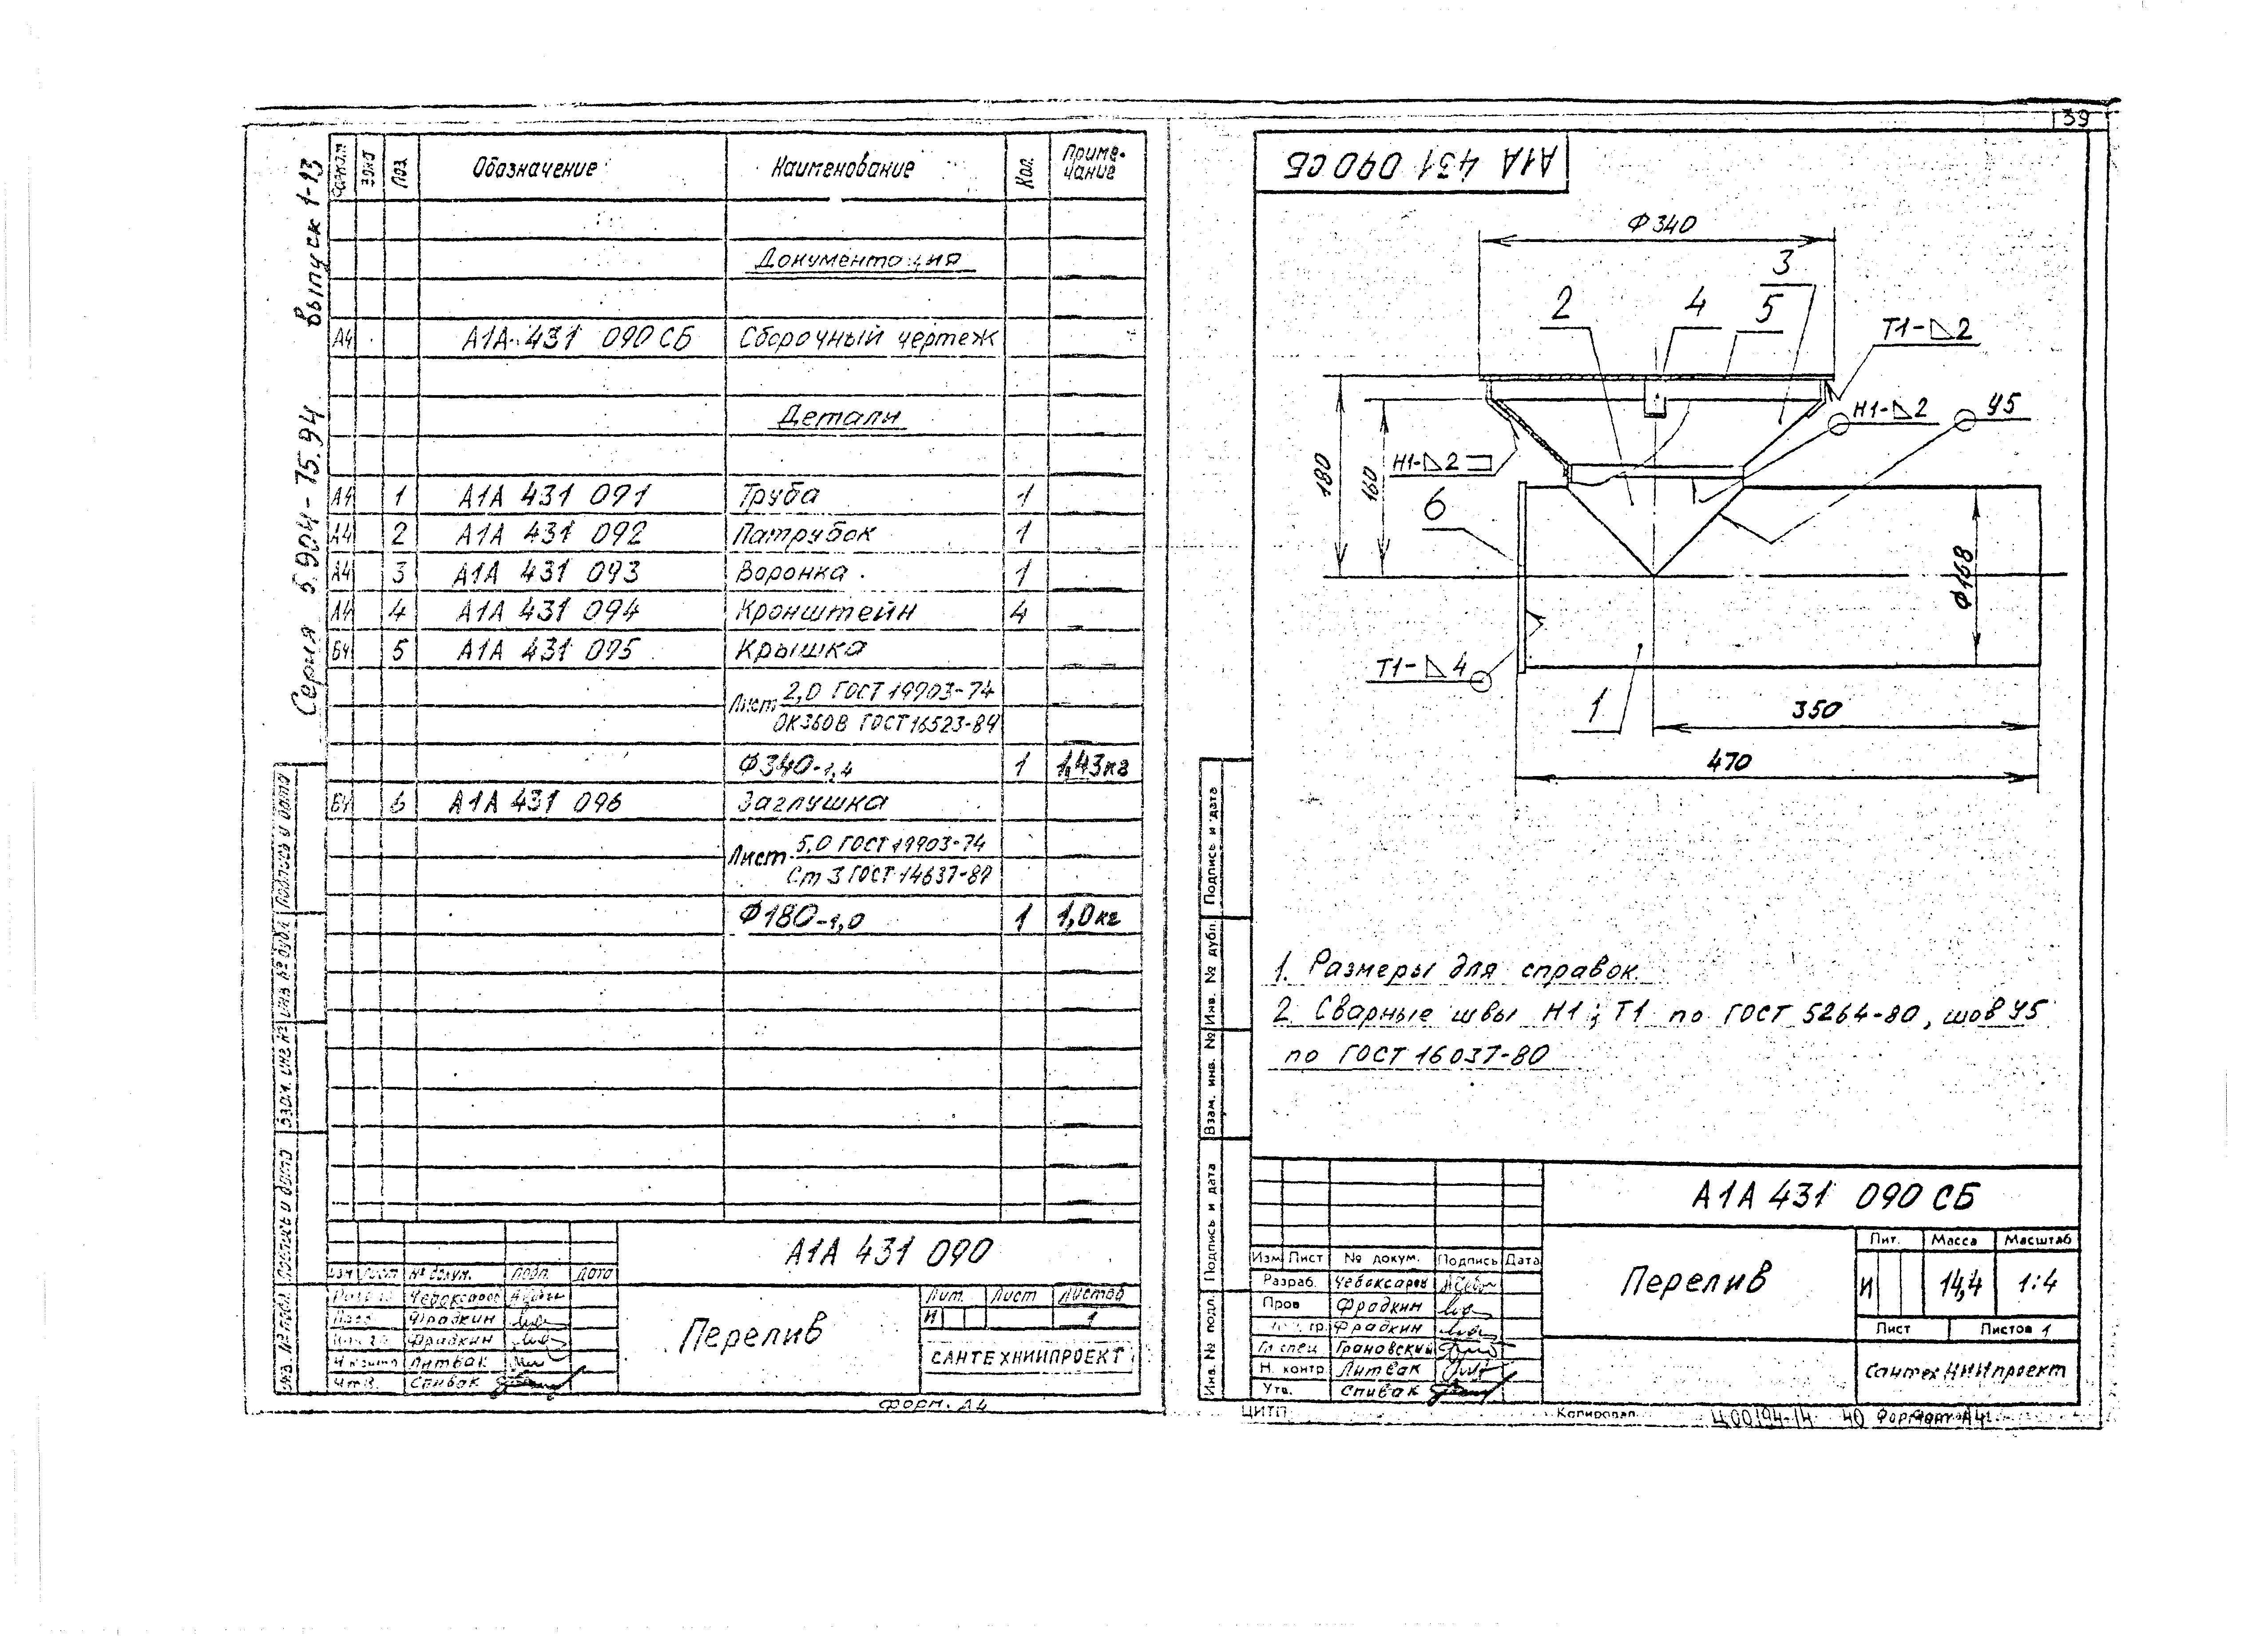 39
Серия 5.904-75.94 Выпуск 1-13
Формат Зона Поз. Обозначение Наименование Кол. Приме-
чание
Документация
А4 А1А 431 090 СБ Сборочный чертеж
Детали
А4 1 А1А 431 091 Труба 1
А4 2 А1А 431 092 Патрубок 1
А4 3 А1А 431 093 Воронка 1
А4 4 А1А 431 094 Кронштейн 4
БЧ 5 А1А 431 095 Крышка
Лист 2,0 ГОСТ 19903-74
ОК360В ГОСТ 16523-89
Ф340-1,4 1 1,43кг
БЧ 6 А1А 431 096 Заглушка
Лист 5,0 ГОСТ 19903-74
Ст 3 ГОСТ 14637-89
Ф180-1,0 1 1,0кг
Подпись и дата
Инв № дубл
Взам. инв №
Подпись и дата
Инв. № подл.
А1А 431 090
Изм Лист № докум. Подп. Дата
Чебоксаров
Фрадкин
Фрадкин
Литвак
Утв. Спивак
Перелив
Лит. Лист Листов
И 1
САНТЕХНИИПРОЕКТ
Форм. А4
А1А 431 090 СБ
Ф340
2
4
3
5
Т1-◺2
Н1-◺2
У5
Н1-◺2
6
180
160
Ф168
Т1-◺4
1
350
470
1. Размеры для справок
2 Сварные швы Н1; Т1 по ГОСТ 5264-80, шов У5
по ГОСТ 16037-80
Подпись и дата
Инв. № дубл.
Взам. инв. №
Подпись и дата
Инв. № подл.
А1А 431 090 СБ
Изм Лист № докум. Подпись Дата
Разраб. Чебоксаров
Пров Фрадкин
гр. Фрадкин
Гл спец Грановский
Н. контр Литвак
Утв. Спивак
Перелив
Лит. Масса Масштаб
И 14,4 1:4
Лист Листов 1
СантехНИИпроект
ЦИТП Копировал Ц00194-14 40 Формат А4